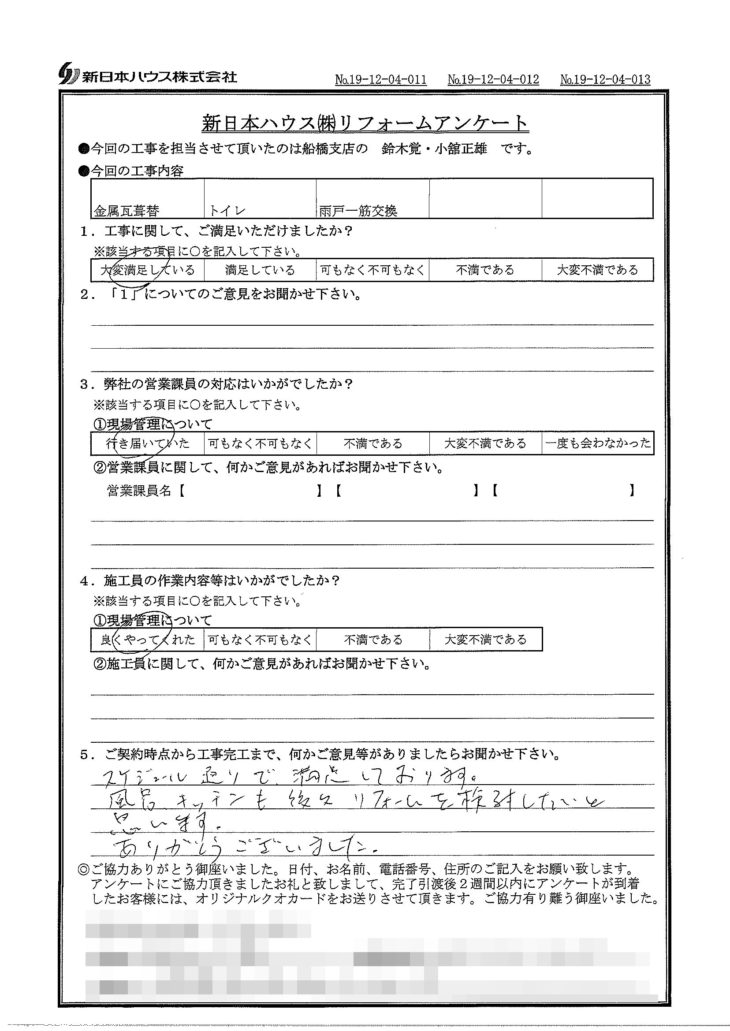 新日本ハウス株式会社 №19-12-04-011 №19-12-04-012 №19-12-04-013
新日本ハウス㈱リフォームアンケート
●今回の工事を担当させて頂いたのは船橋支店の 鈴木覚・小舘正雄 です。
●今回の工事内容
金属瓦葺替 トイレ 雨戸一筋交換
1．工事に関して、ご満足いただけましたか？
※該当する項目に○を記入して下さい。
大変満足している 満足している 可もなく不可もなく 不満である 大変不満である
2．「1」についてのご意見をお聞かせ下さい。
3．弊社の営業課員の対応はいかがでしたか？
※該当する項目に○を記入して下さい。
①現場管理について
行き届いていた 可もなく不可もなく 不満である 大変不満である 一度も会わなかった
②営業課員に関して、何かご意見があればお聞かせ下さい。
営業課員名【 】【 】【 】
4．施工員の作業内容等はいかがでしたか？
※該当する項目に○を記入して下さい。
①現場管理について
良くやってくれた 可もなく不可もなく 不満である 大変不満である
②施工員に関して、何かご意見があればお聞かせ下さい。
5．ご契約時点から工事完工まで、何かご意見等がありましたらお聞かせ下さい。
スケジュール通りで、満足しております。
風呂 キッチンも後々リフォームを検討したいと
思います。
ありがとうございました。
◎ご協力ありがとう御座いました。日付、お名前、電話番号、住所のご記入をお願い致します。
アンケートにご協力頂きましたお礼と致しまして、完了引渡後２週間以内にアンケートが到着
したお客様には、オリジナルクオカードをお送りさせて頂きます。ご協力有り難う御座いました。